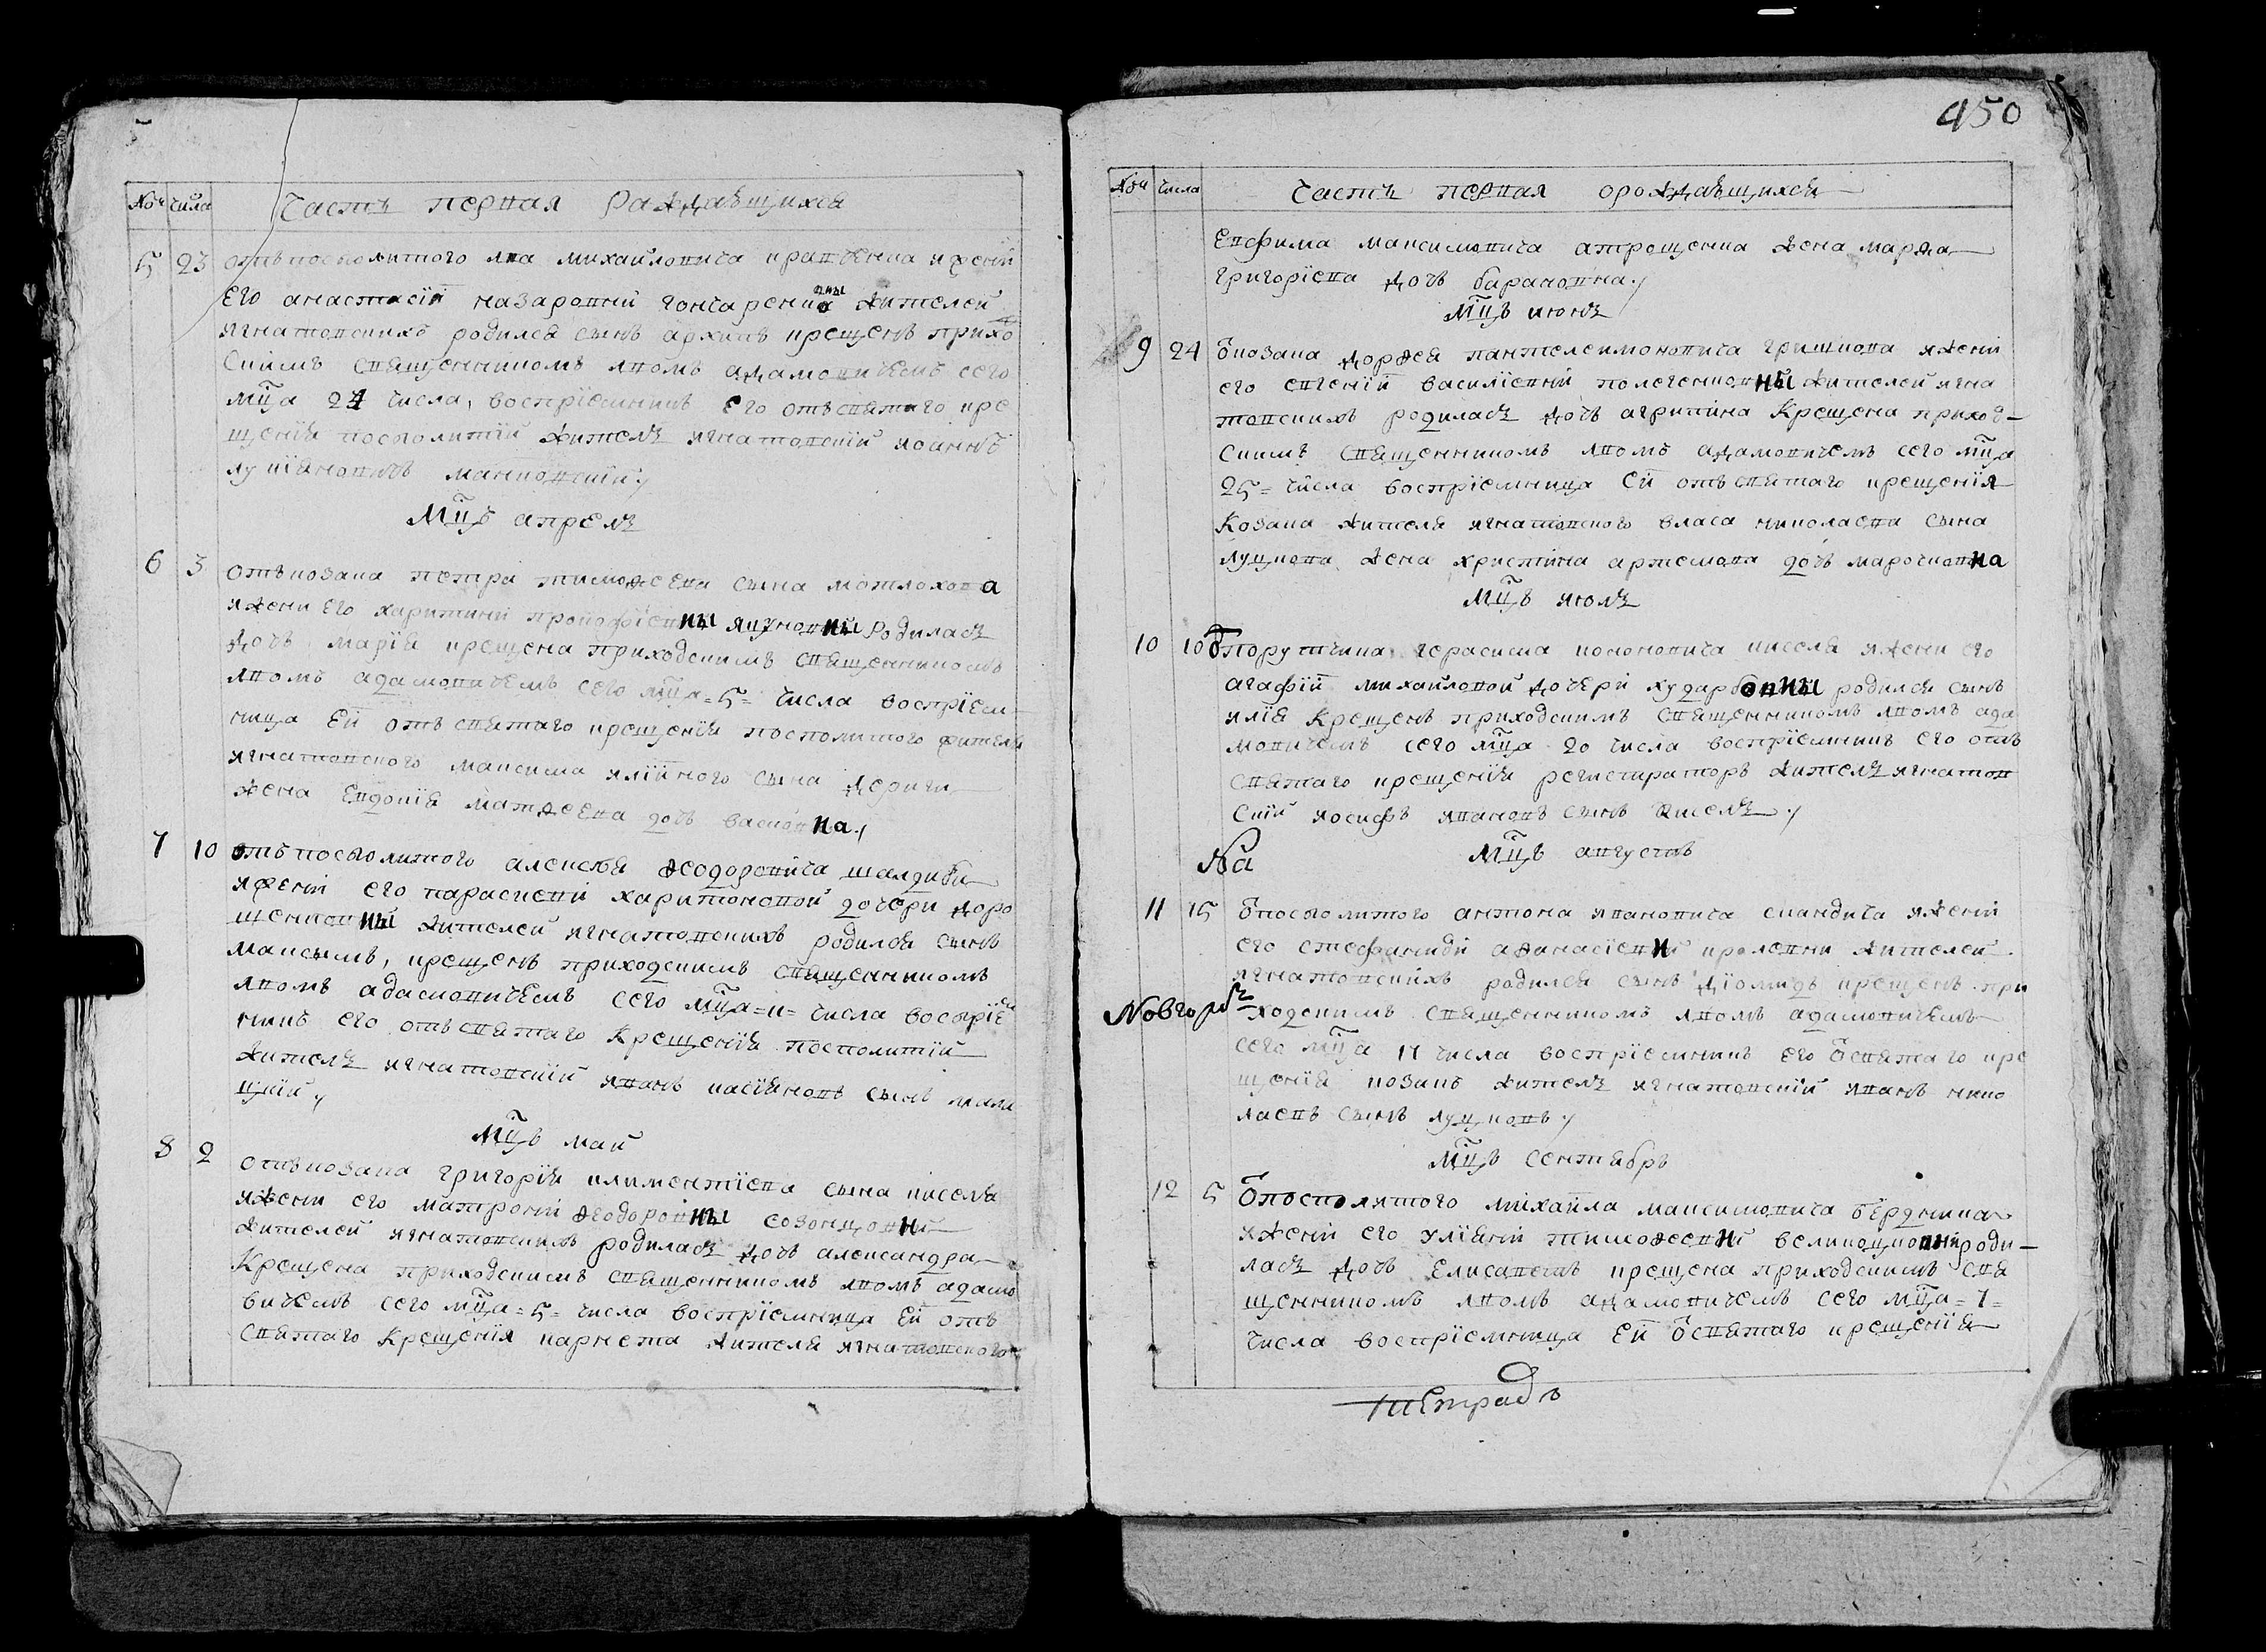 № числа Часть первая раждаѣщихся
5 23 отъ посполитого лва михайловича кравченка и жени
его анастасіи назаровни гончаренковны жителей
игнатовскихъ родился сынъ архипъ крещенъ прихо
скимъ священникомъ лвомъ адамовичемъ сего
мца 24 числа, воспріемникъ его отъ святаго кре
щенія посполитій житель игнатовскій иоаннъ
лукіановичъ манковскій
Мцъ апрель
6 3 отъ козака петра тимофеева сына мотлохова
и жени его харитини прокофіевны яцуновны родилась
дочь марія крещена приходскимъ священникомъ
лвомъ адамовичемъ сего мца =5= числа воспріем
ница ей отъ святаго крещенія посполитого жителя
игнатовского максима иллійного сына дериги
жена евдокія матфеева дочь васковна
7 10 отъ посполитого алексѣя феодоровича шалдиби
и жени его параскеви харитоновой дочери доро
щенковны жителей игнатовскихъ родился сынъ
максимъ, крещенъ приходскимъ священникомъ
лвомъ адамовичемъ сего мца =11= числа воспріем
никъ его отъ святаго крещенія посполитій
житель игнатовскій иванъ касіяновъ сынъ
цкій
Мцъ май
8 2 отъ козака григорія климентіева сына киселя
и жени его матрони феодоровны созонцовни
жителей игнатовскихъ родилась дочь александра
крещена приходскимъ священникомъ лвомъ адамо
вичемъ сего мца =5= числа воспріемница ей отъ
святаго крещенія карнета жителя игнатовского
450
№ числа Часть первая о рождаѣщихся
Евфима максимовича атрощенка жена марфа
григоріева дочь барановна
Мцъ июнь
9 24 ѿ козака дорфея пантелеимоновича гришкова и жени
его евгеніи василіевни полегенковны жителей игна
товскихъ родилась дочь агрипина крещена приход
скимъ священникомъ лвомъ адамовичемъ сего мца
25= числа воспріемница ей отъ святаго крещенія
козака жителя игнатовского власа николаева сына
луцкова жена христина артемова дочь марочковна
Мцъ июль
10 10 ѿ порутчика герасима кононовича киселя и жени его
агафіи михайловой дочери хударковны родился сынъ
илія крещенъ приходскимъ священникомъ лвомъ ада
мовичемъ сего мца 20 числа воспріемникъ его отъ
святаго крещенія регистраторъ житель игнатов
скій иосифъ ивановъ сынъ кисель
Мцъ августъ
На
11 15 ѿ посполитого антона ивановича скандича и жени
его стефаниди афанасіевни кролевни жителей
игнатовскихъ родился сынъ діомидъ крещенъ при
Новгор
ходскимъ священникомъ лвомъ адамовичемъ
сего мца 17 числа воспріемникъ его ѿ святаго кре
щенія козакъ житель игнатовскій иванъ нико
лаевъ сынъ луцковъ
Мцъ сентябръ
12 5 ѿ посполитого михайла максимовича бердника
и жени его уліяни тимофеевни великоцковни роди
лась дочь елисаветъ крещена приходскимъ свя
щенникомъ лвомъ адамовичемъ сего мца =7=
числа воспріемница ей ѿ святаго крещенія
тетрадь